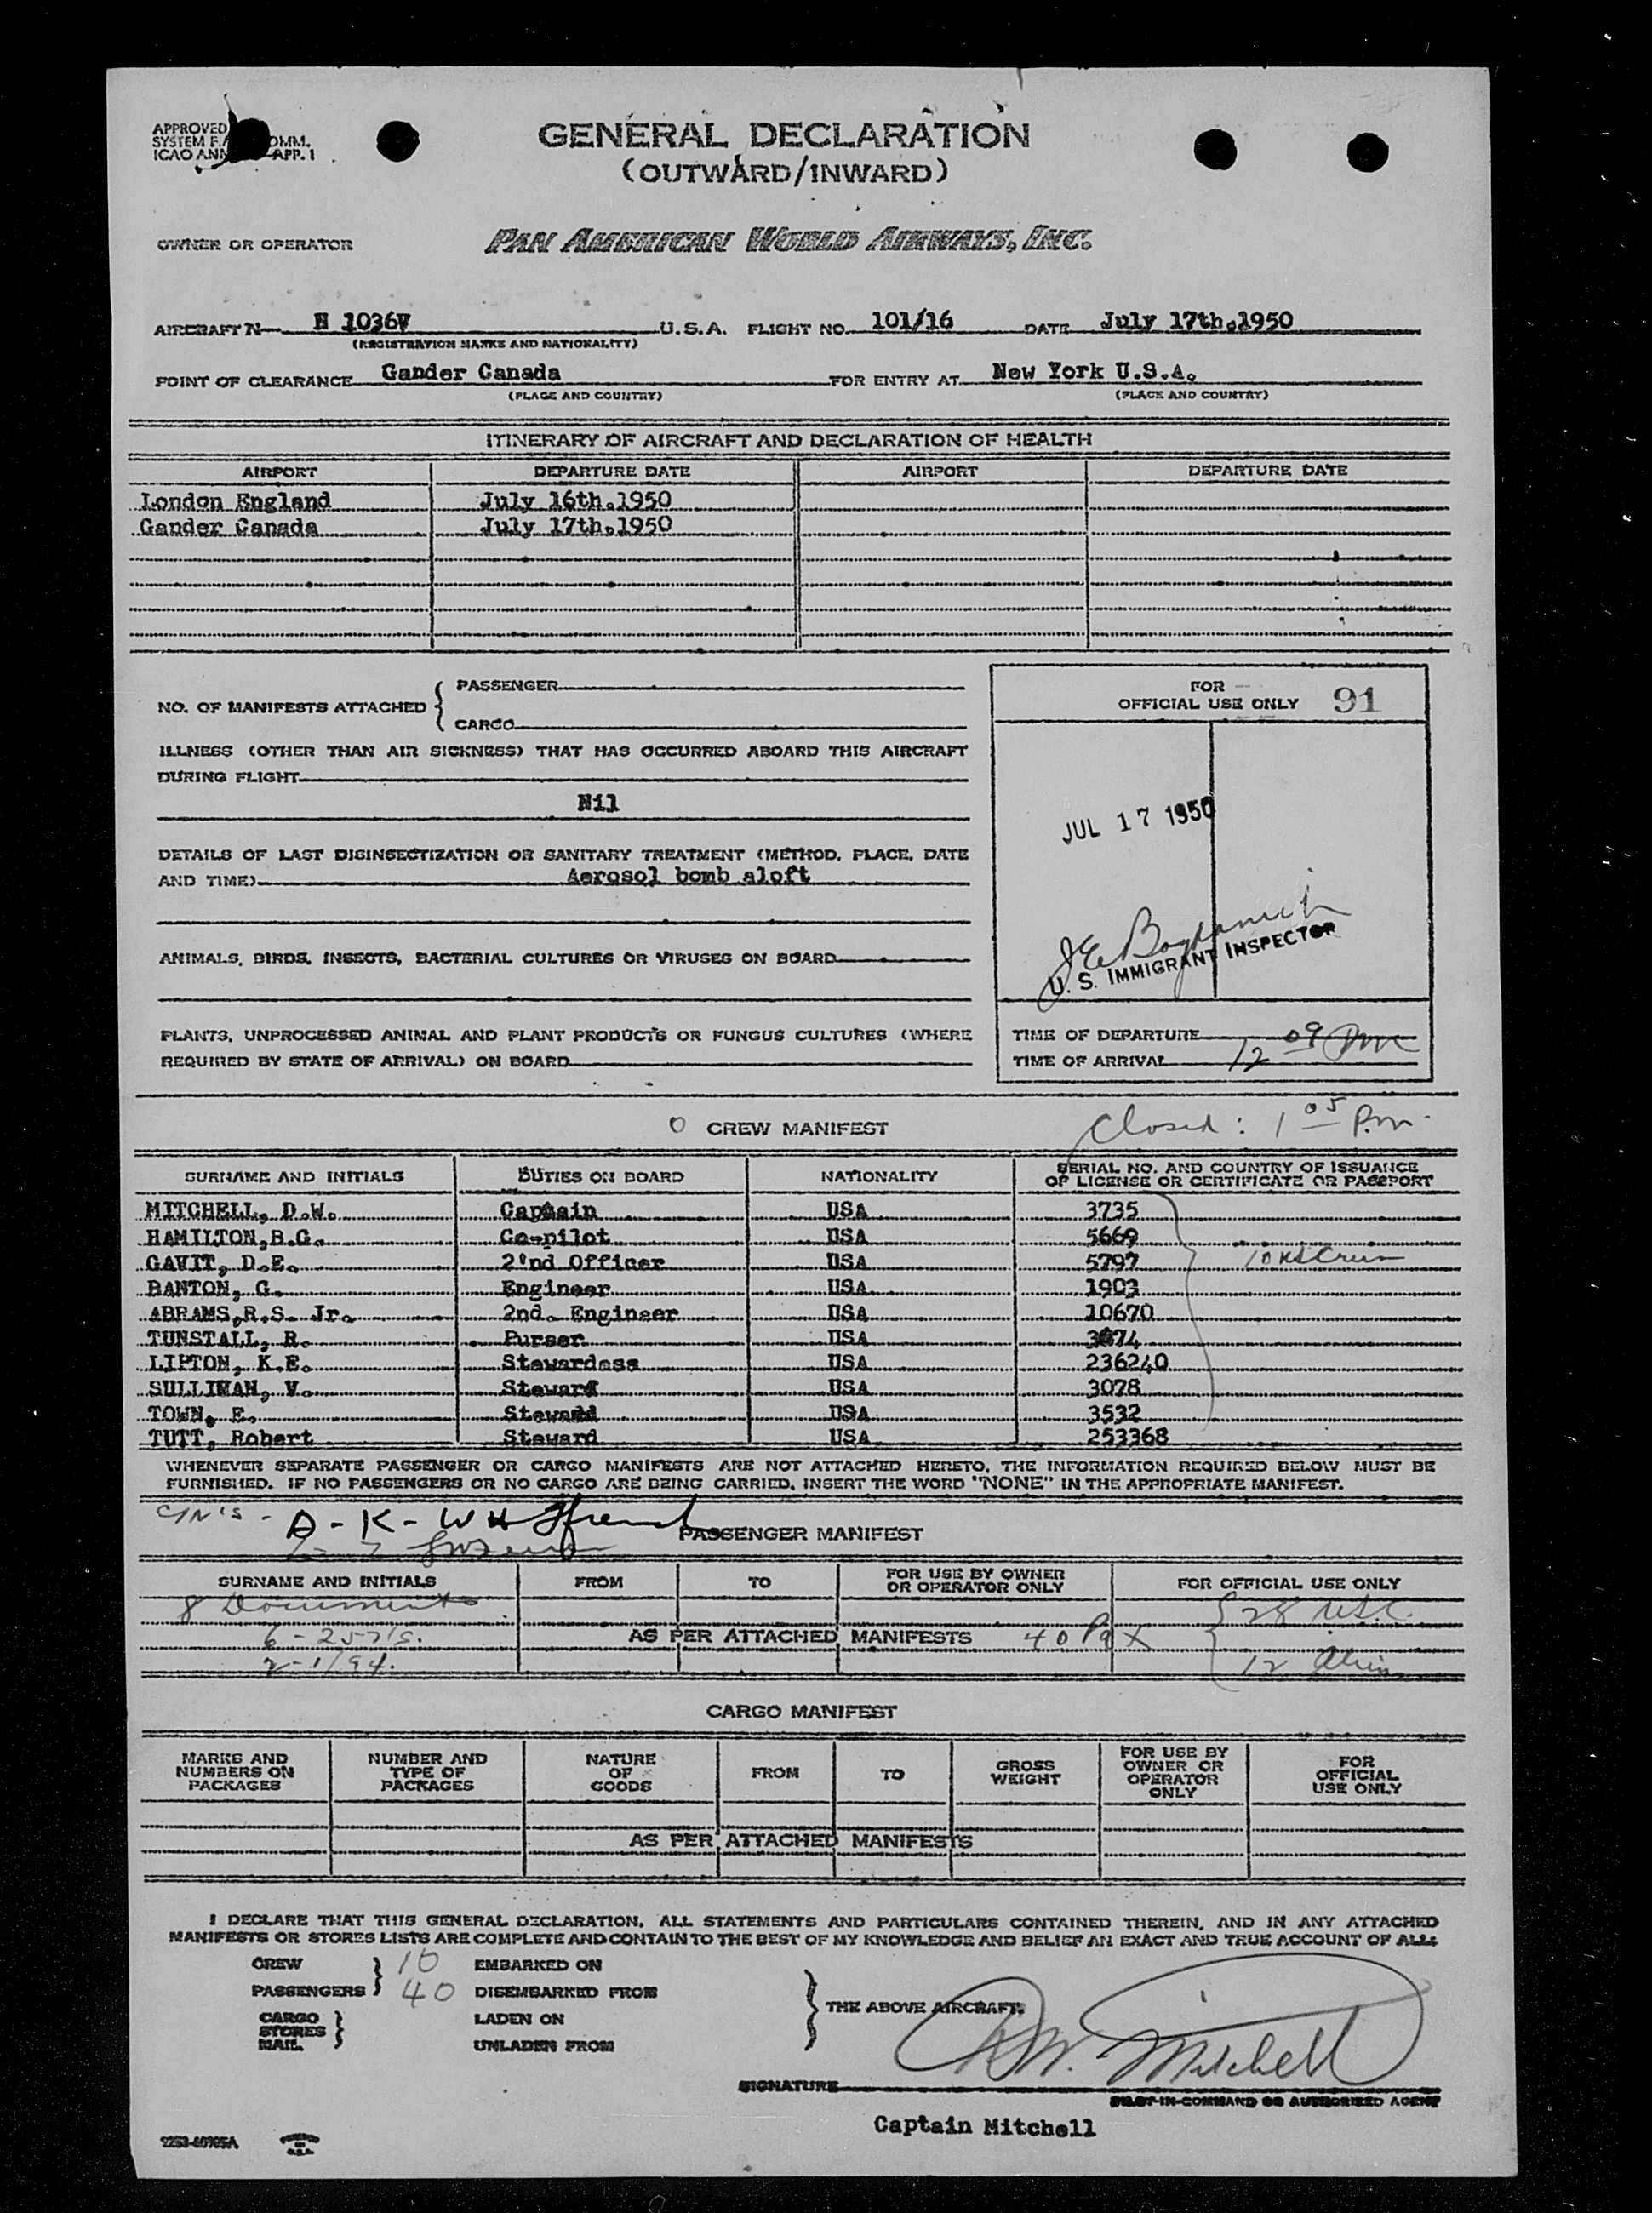 APPROVED
SYSTEM OMM.
ICAO ANN APP. 1
GENERAL DECLARATION
(OUTWARD/INWARD)
OWNER OR OPERATOR PAN AMERICAN WORLD AIRWAYS, INC.
AIRCRAFT N N 1036V U.S.A. FLIGHT NO. 101/16 DATE July 17th.1950
(REGISTRATION MARKS AND NATIONALITY)
POINT OF CLEARANCE Gander Canada FOR ENTRY AT New York U.S.A.
(PLACE AND COUNTRY) (PLACE AND COUNTRY)
ITINERARY OF AIRCRAFT AND DECLARATION OF HEALTH
AIRPORT DEPARTURE DATE AIRPORT DEPARTURE DATE
London England July 16th.1950
Gander Canada July 17th.1950
NO. OF MANIFESTS ATTACHED { PASSENGER
CARGO
ILLNESS (OTHER THAN AIR SICKNESS) THAT HAS OCCURRED ABOARD THIS AIRCRAFT
DURING FLIGHT
Nil
DETAILS OF LAST DISINSECTIZATION OR SANITARY TREATMENT (METHOD, PLACE, DATE
AND TIME) Aerosol bomb aloft
ANIMALS, BIRDS, INSECTS, BACTERIAL CULTURES OR VIRUSES ON BOARD
PLANTS, UNPROCESSED ANIMAL AND PLANT PRODUCTS OR FUNGUS CULTURES (WHERE
REQUIRED BY STATE OF ARRIVAL) ON BOARD
FOR
OFFICIAL USE ONLY 91
JUL 17 1950
U. S. IMMIGRANT INSPECTOR
TIME OF DEPARTURE
TIME OF ARRIVAL 12 09 Pm
Closed: 1 05 P.m.
CREW MANIFEST
SURNAME AND INITIALS DUTIES ON BOARD NATIONALITY SERIAL NO. AND COUNTRY OF ISSUANCE
OF LICENSE OR CERTIFICATE OR PASSPORT
MITCHELL, D.W. Captain USA 3735
HAMILTON,B.G. Co-pilot USA 5669
GAVIT, D.E. 2'nd Officer USA 5797
BANTON, G. Engineer USA 1903
ABRAMS,R.S. Jr. 2nd. Engineer USA 10670
TUNSTALL, R. Purser USA
LIPTON, K.E. Stewardess USA 236240
SULLIVAN, V. Steward USA 3078
TOWN, E. Steward USA 3532
TUTT, Robert Steward USA 253368
WHENEVER SEPARATE PASSENGER OR CARGO MANIFESTS ARE NOT ATTACHED HERETO, THE INFORMATION REQUIRED BELOW MUST BE
FURNISHED. IF NO PASSENGERS OR NO CARGO ARE BEING CARRIED, INSERT THE WORD "NONE" IN THE APPROPRIATE MANIFEST.
PASSENGER MANIFEST
SURNAME AND INITIALS FROM TO FOR USE BY OWNER
OR OPERATOR ONLY FOR OFFICIAL USE ONLY
8 Documents 28 U.S.C.
6 - 257's. AS PER ATTACHED MANIFESTS 40 Pax
2 - 1/94. 12 Aliens
CARGO MANIFEST
MARKS AND
NUMBERS ON
PACKAGES
NUMBER AND
TYPE OF
PACKAGES
NATURE
OF
GOODS
FROM
TO
GROSS
WEIGHT
FOR USE BY
OWNER OR
OPERATOR
ONLY
FOR
OFFICIAL
USE ONLY
AS PER ATTACHED MANIFESTS
I DECLARE THAT THIS GENERAL DECLARATION, ALL STATEMENTS AND PARTICULARS CONTAINED THEREIN, AND IN ANY ATTACHED
MANIFESTS OR STORES LISTS ARE COMPLETE AND CONTAIN TO THE BEST OF MY KNOWLEDGE AND BELIEF AN EXACT AND TRUE ACCOUNT OF ALL:
CREW 10 EMBARKED ON
PASSENGERS 40 DISEMBARKED FROM
CARGO LADEN ON
STORES
MAIL UNLADEN FROM
THE ABOVE AIRCRAFT.
D.W. Mitchell
SIGNATURE
PILOT-IN-COMMAND OR AUTHORIZED AGENT
Captain Mitchell
2253-40905A